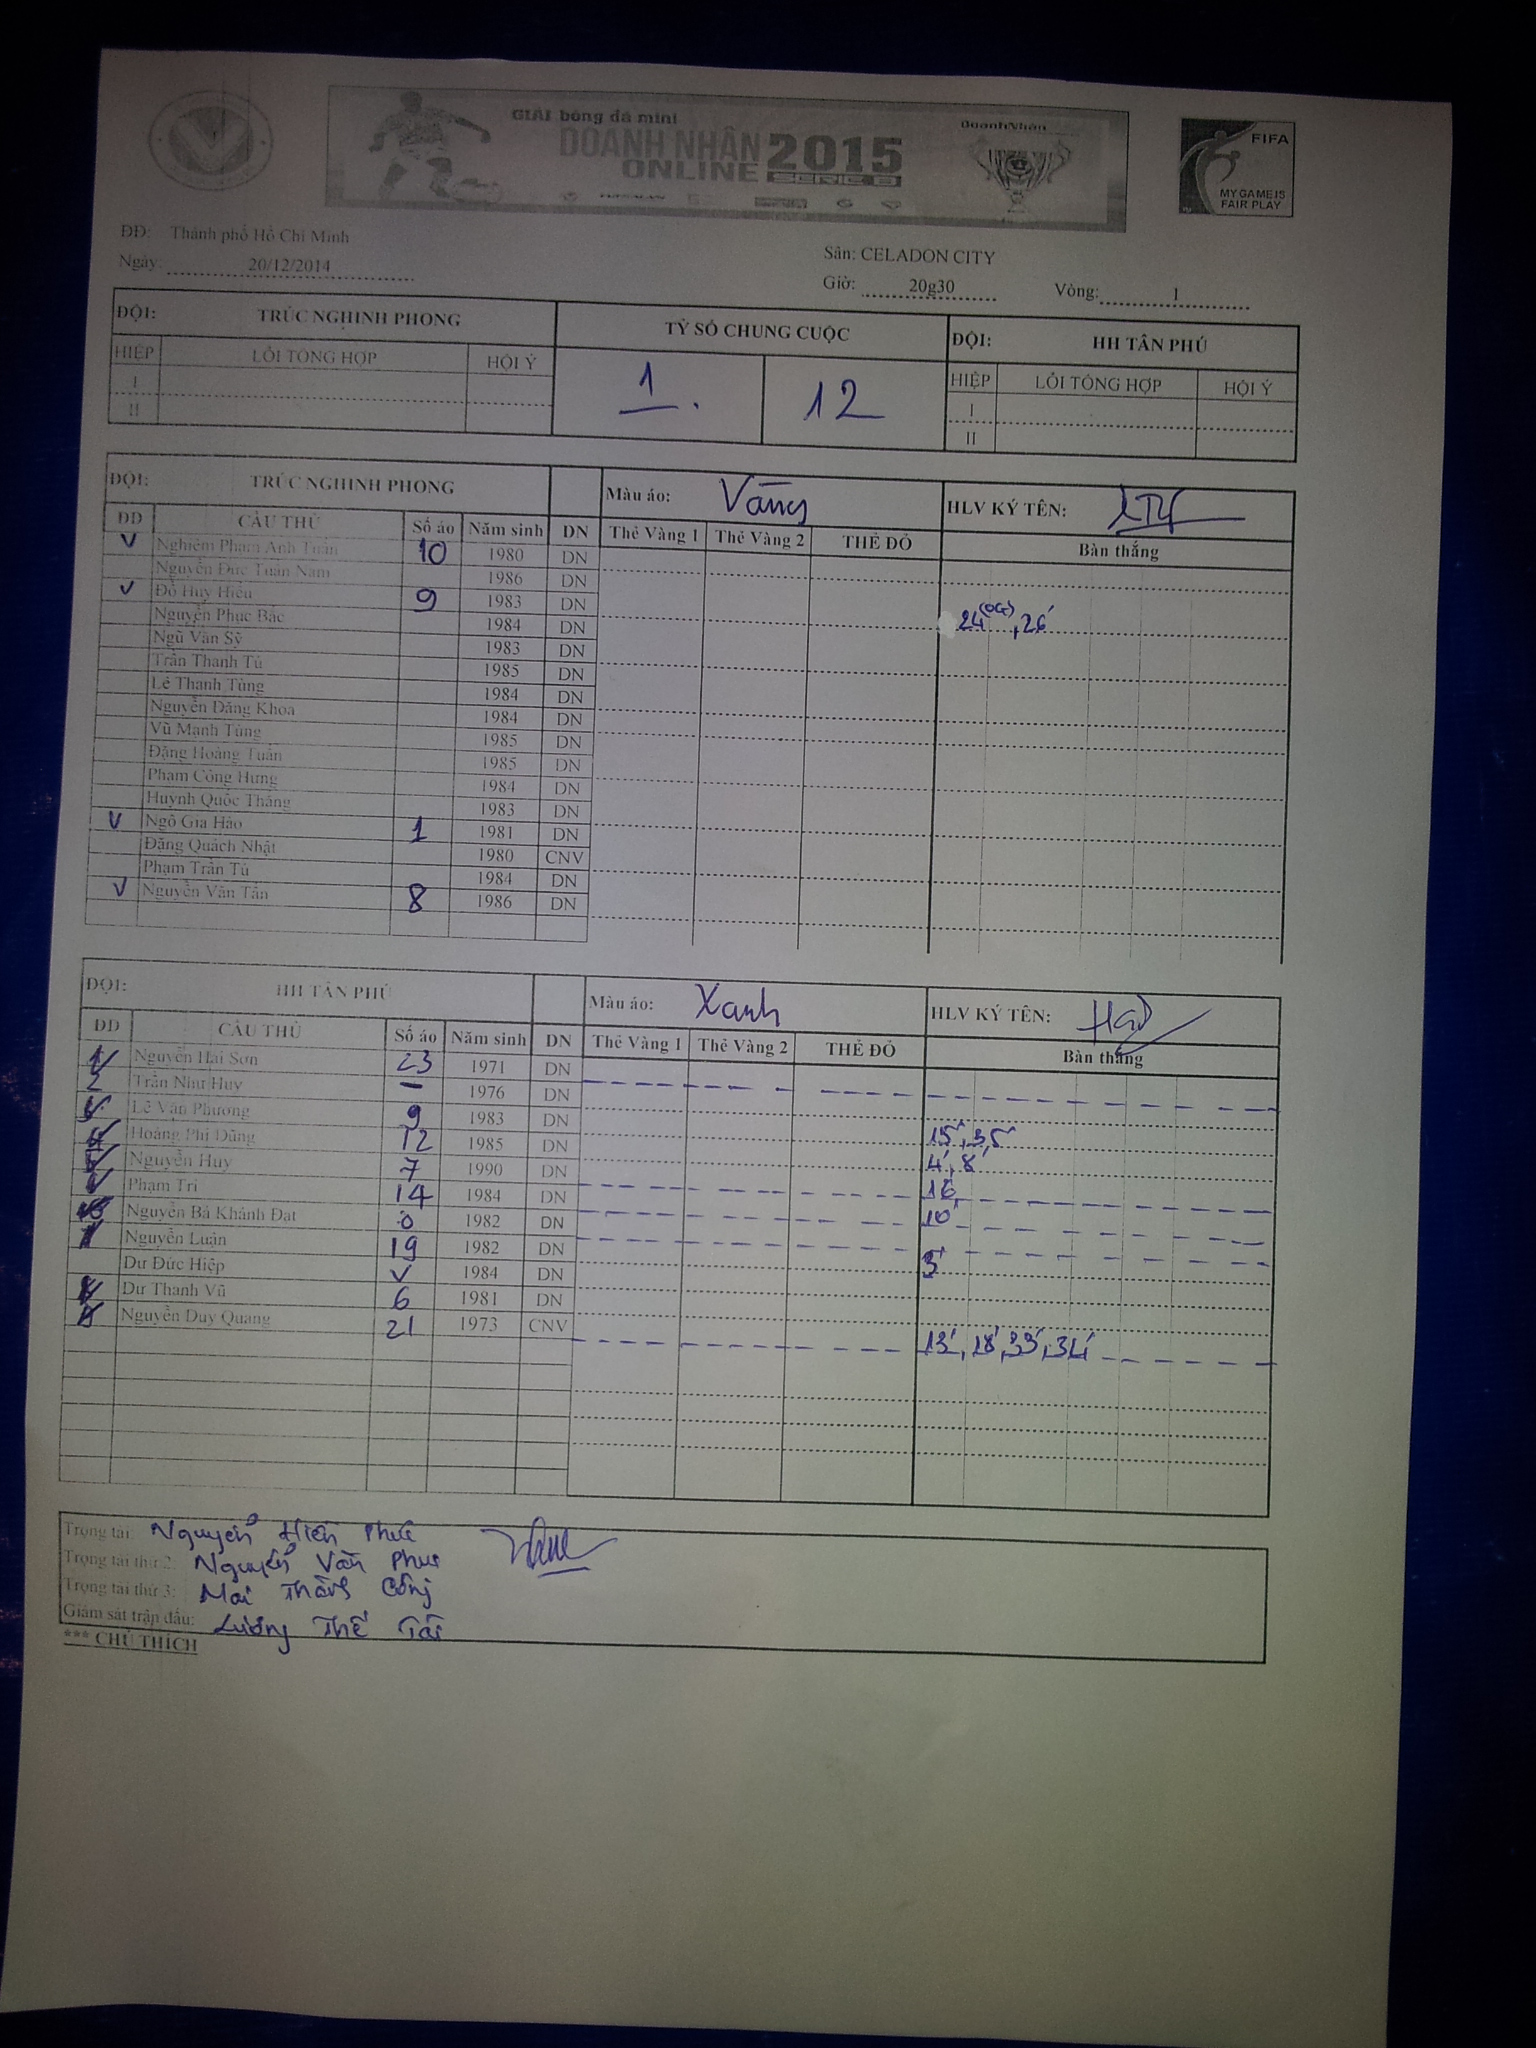 GIẢI bóng đá mini
DOANH NHÂN 2015
ONLINE SERIE B
DoanhNhân
FIFA
MY GAME IS
FAIR PLAY
ĐĐ: Thành phố Hồ Chí Minh
Sân: CELADON CITY
Ngày: 20/12/2014
Giờ: 20g30 Vòng: 1
ĐỘI: TRÚC NGHINH PHONG TỶ SỐ CHUNG CUỘC ĐỘI: HH TÂN PHÚ
HIỆP LỖI TỔNG HỢP HỘI Ý 1 12 HIỆP LỖI TỔNG HỢP HỘI Ý
I I
II II
ĐỘI: TRÚC NGHINH PHONG Màu áo: Vàng HLV KÝ TÊN:
ĐD CẦU THỦ Số áo Năm sinh DN Thẻ Vàng 1 Thẻ Vàng 2 THẺ ĐỎ Bàn thắng
V Nghiêm Phạm Anh Tuấn 10 1980 DN
Nguyễn Đức Tuấn Nam 1986 DN
V Đỗ Huy Hiếu 9 1983 DN 24(OG), 26'
Nguyễn Phục Bắc 1984 DN
Ngũ Văn Sỹ 1983 DN
Trần Thanh Tú 1985 DN
Lê Thanh Tùng 1984 DN
Nguyễn Đăng Khoa 1984 DN
Vũ Mạnh Tùng 1985 DN
Đặng Hoàng Tuấn 1985 DN
Phạm Công Hưng 1984 DN
Huỳnh Quốc Thắng 1983 DN
V Ngô Gia Hào 1 1981 DN
Đặng Quách Nhật 1980 CNV
Phạm Trần Tú 1984 DN
V Nguyễn Văn Tân 8 1986 DN
ĐỘI: HH TÂN PHÚ Màu áo: Xanh HLV KÝ TÊN:
ĐD CẦU THỦ Số áo Năm sinh DN Thẻ Vàng 1 Thẻ Vàng 2 THẺ ĐỎ Bàn thắng
Nguyễn Hải Sơn 23 1971 DN
Trần Như Huy – 1976 DN
Lê Văn Phương 9 1983 DN
Hoàng Phi Dũng 12 1985 DN 15', 35'
Nguyễn Huy 7 1990 DN 4', 8'
Phạm Trí 14 1984 DN 16'
Nguyễn Bá Khánh Đạt 0 1982 DN 10'
Nguyễn Luận 19 1982 DN
Dư Đức Hiệp V 1984 DN 3'
Dư Thanh Vũ 6 1981 DN
Nguyễn Duy Quang 21 1973 CNV 13', 18', 33', 34'
Trọng tài: Nguyễn Hiền Phúc
Trọng tài thứ 2: Nguyễn Văn Phúc
Trọng tài thứ 3: Mai Thành Công
Giám sát trận đấu: Lương Thế Tài
*** CHÚ THÍCH